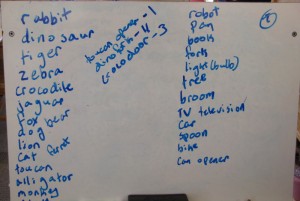 rabbit
dinosaur
tiger
zebra
crocodile
jaguar
fox
dog bear
lion
cat ferret
toucan
alligator
monkey
toucan opener -1
dino fork -4
crocodoor -3
robot
pan
book
fork
light (bulb)
tree
broom
TV television
car
spoon
bike
can opener